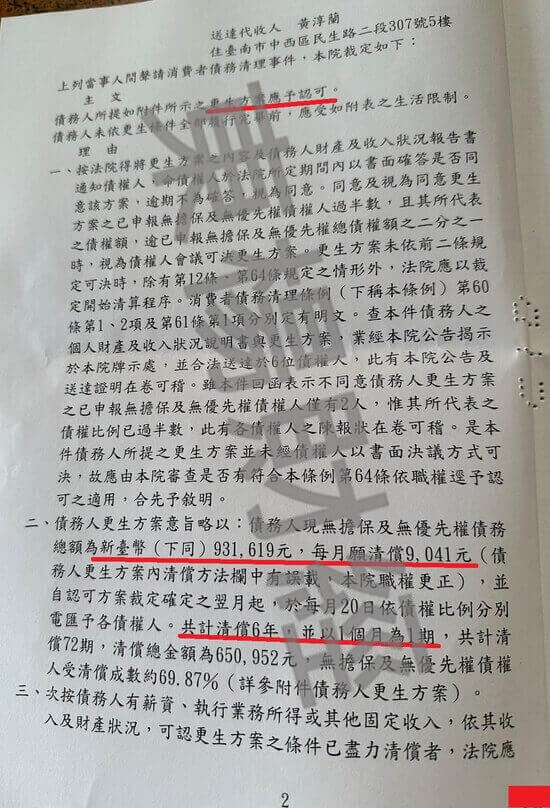 送達代收人 黃淳蘭
住臺南市中西區民生路二段307號5樓
上列當事人間聲請消費者債務清理事件，本院裁定如下：
主文
債務人所提如附件所示之更生方案應予認可。
債務人未依更生條件全部履行完畢前，應受如附表之生活限制。
理由
一、按法院得將更生方案之內容及債務人財產及收入狀況報告書
通知債權人，命債權人於法院所定期間內以書面確答是否同
意該方案，逾期不為確答，視為同意。同意及視為同意更生
方案之已申報無擔保及無優先權債權人過半數，且其所代表
之債權額，逾已申報無擔保及無優先權總債權額之二分之一
時，視為債權人會議可決更生方案。更生方案未依前二條規
定可決時，除有第12條、第64條規定之情形外，法院應以裁
定開始清算程序。消費者債務清理條例（下稱本條例）第60
條第1、2項及第61條第1項分別定有明文。查本件債務人之
個人財產及收入狀況說明書與更生方案，業經本院公告揭示
於本院牌示處，並合法送達於6位債權人，此有本院公告及
送達證明在卷可稽。雖本件回函表示不同意債務人更生方案
之已申報無擔保及無優先權債權人僅有2人，惟其所代表之
債權比例已過半數，此有各債權人之陳報狀在卷可稽。是本
件債務人所提之更生方案並未經債權人以書面決議方式可
決，故應由本院審查是否有符合本條例第64條依職權逕予認
可之適用，合先予敘明。
二、債務人更生方案意旨略以：債務人現無擔保及無優先權債務
總額為新臺幣（下同）931,619元，每月願清償9,041元（債
務人更生方案內清償方法欄中有誤載，本院職權更正），並
自認可方案裁定確定之翌月起，於每月20日依債權比例分別
電匯予各債權人。共計清償6年，並以1個月為1期，共計清
償72期，清償總金額為650,952元，無擔保及無優先權債權
人受清償成數約69.87%（詳參附件債務人更生方案）。
三、次按債務人有薪資、執行業務所得或其他固定收入，依其收
入及財產狀況，可認更生方案之條件已盡力清償者，法院應
2